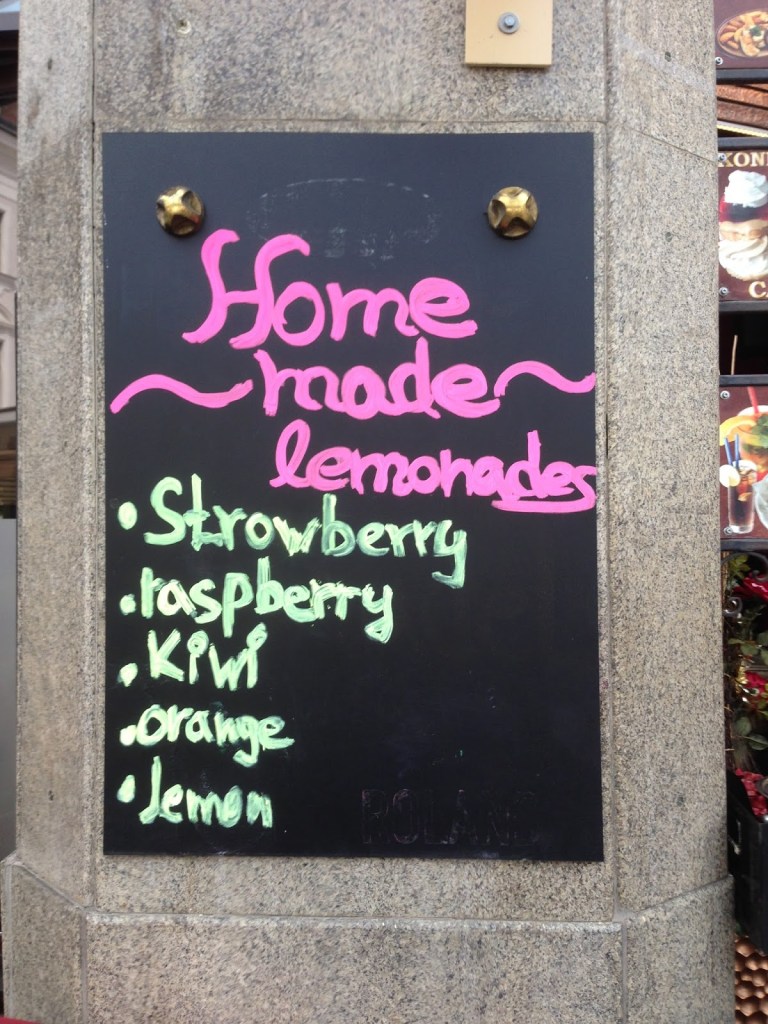 Home
~ made ~
lemonades
• Strowberry
• raspberry
• Kiwi
• orange
• lemon
ROLAND